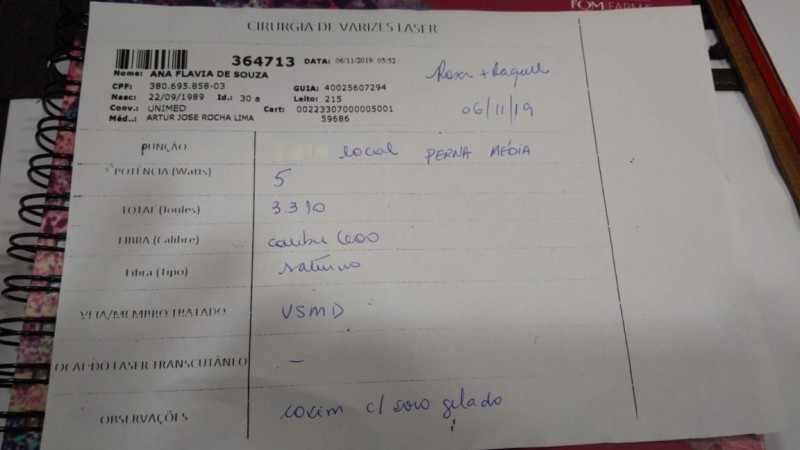 FOM FARMA
CIRURGIA DE VARIZES LASER
364713 DATA: 06/11/2019 05:52
Nome: ANA FLAVIA DE SOUZA
CPF: 380.695.858-03 GUIA: 40025607294
Nasc: 22/09/1989 Id.: 30 a Leito: 215
Conv.: UNIMED Cart: 00223307000005001
Méd..: ARTUR JOSE ROCHA LIMA 59686
Rosa + Raquel
06/11/19
PUNÇÃO local PERNA MÉDIA
POTÊNCIA (Watts) 5
TOTAL (Joules) 3.310
FIBRA (Calibre) 600
Fibra (Tipo)
VEIA/MEMBRO TRATADO VSMD
OCAL DO LASER TRANSCUTÂNEO -
OBSERVAÇÕES coxim c/ soro gelado